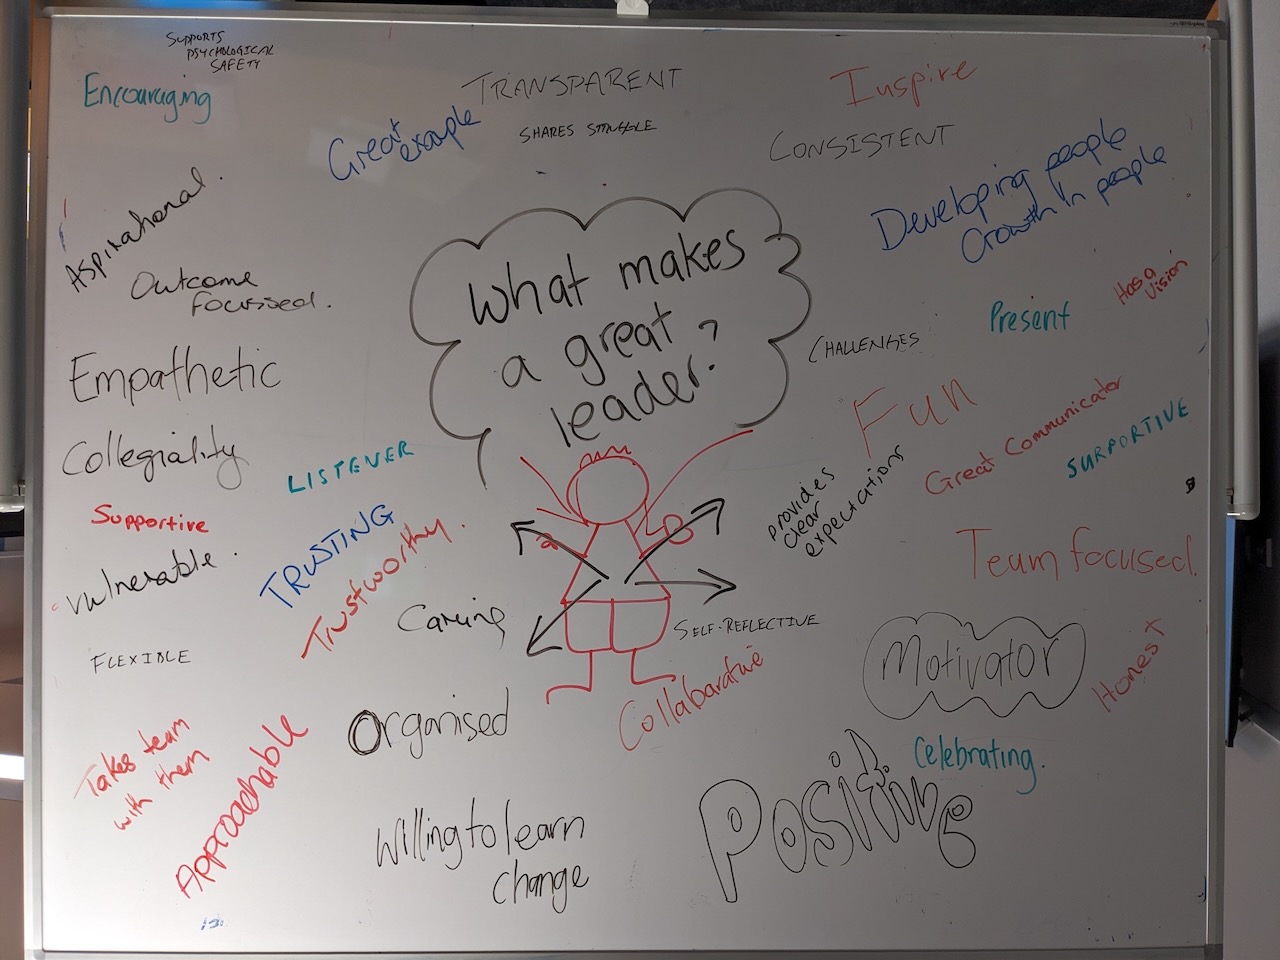 SUPPORTS
PSYCHOLOGICAL
SAFETY
Encouraging
TRANSPARENT
Inspire
Great
example
SHARES STRUGGLE
CONSISTENT
Developing people
Growth in people
Aspirational.
Outcome
focussed.
What makes
a great
leader?
Has a
vision
Present
CHALLENGES
Empathetic
Fun
Great Communicator
SUPPORTIVE
Collegiality
LISTENER
provides
clear
expectations
Supportive
TRUSTING
Trustworthy.
Vulnerable.
Team focused.
Caring
SELF-REFLECTIVE
FLEXIBLE
Motivator
Honest
Collabarative
Organised
Takes team
with them
Approachable
Celebrating.
Positive
Willing to learn
change